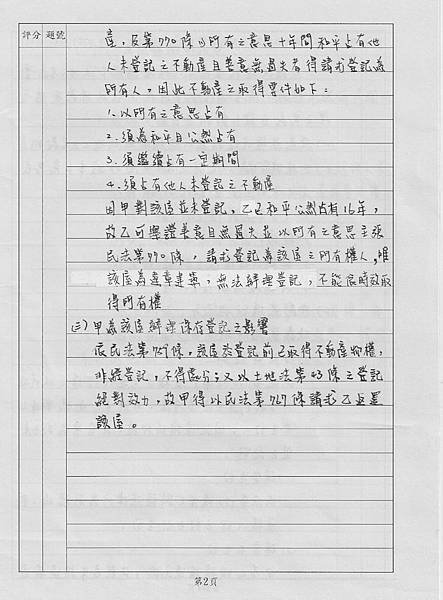 評分 題號
產，反第770條以所有之意思十年間和平占有他
人未登記之不動產且善意無過失者得請求登記為
所有人，因此不動產之取得要件如下：
1.以所有之意思占有
2.須為和平且公然占有
3.須繼續占有一定期間
4.須占有他人未登記之不動產
因甲對該屋並未登記，乙已和平公然占有16年，
故乙可舉證善意且無過失並以所有之意思主張
民法第770條，請求登記為該屋之所有權人，惟
該屋為違章建築，無法辦理登記，不能依時效取
得所有權
(三)甲為該屋辦理保存登記之影響
依民法第759條，該屋於登記前已取得不動產物權，
非經登記，不得處分；又以土地法第43條之登記
絕對效力，故甲得以民法第767條請求乙返還
該屋。
第2頁